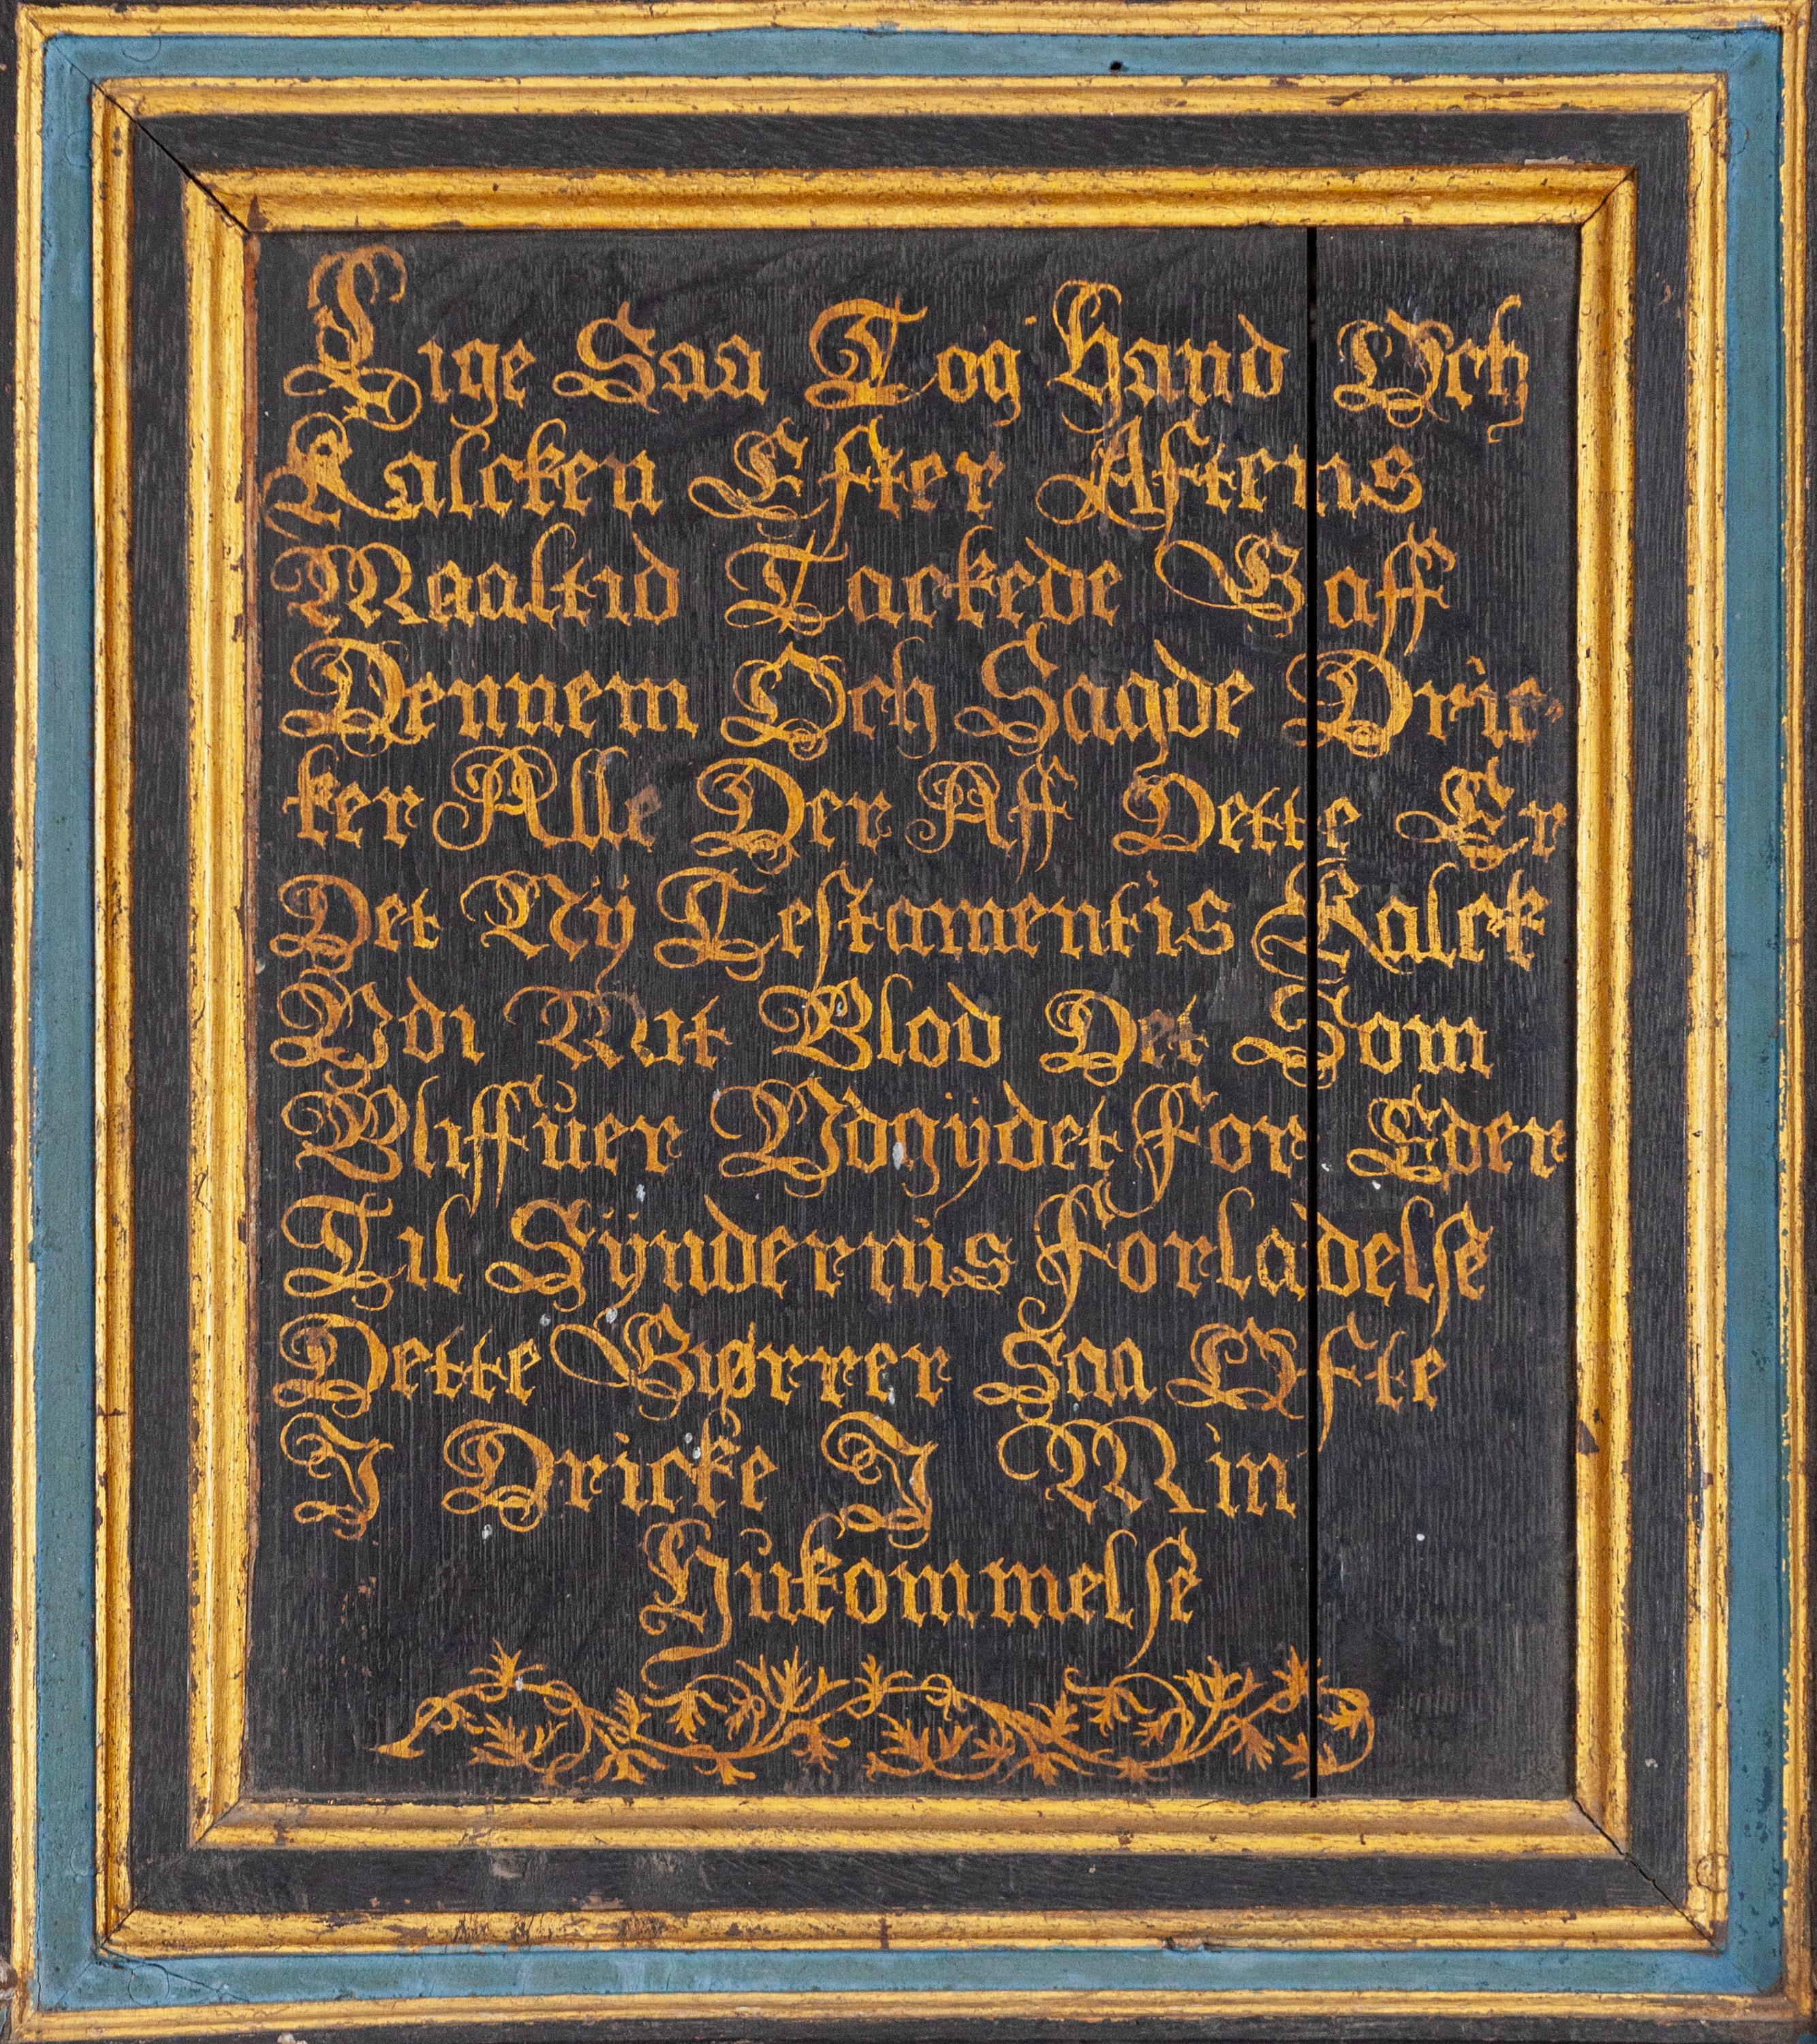 Lige Saa Tog Hand Och
Kalcken Efter Aftens
Maaltid Tackede Gaff
Dennem Och Sagde Dric-
ker Alle Der Aff Dette Er
Det Nÿ Testamentis Kalck
Vdi Mit Blod Det Som
Bliffuer Vdgÿdet For Eder
Til Sÿndernis Forladelse
Dette Giørrer Saa Ofte
I Dricke I Min
Hukommelse